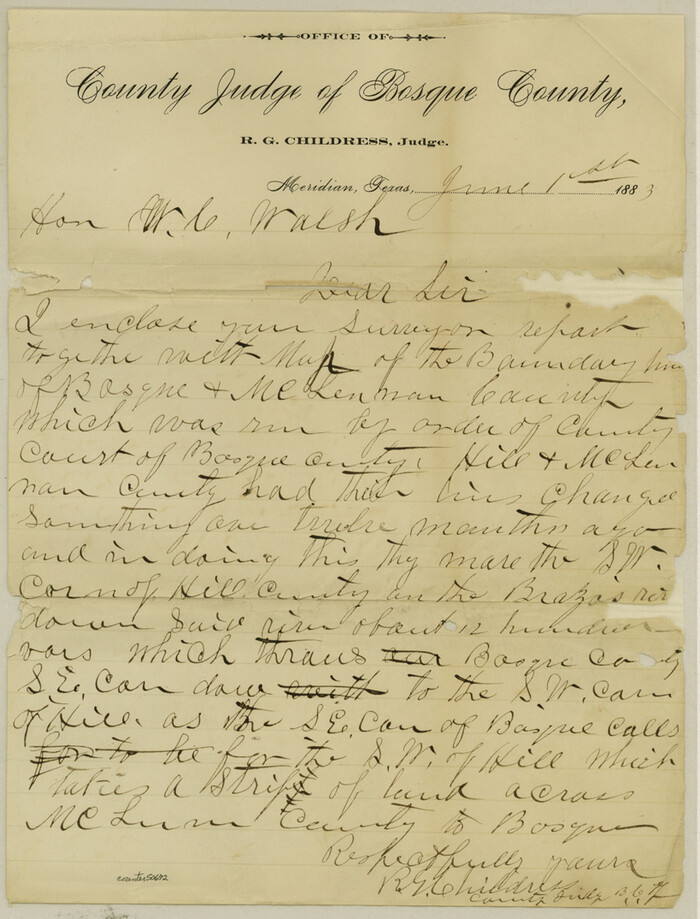 OFFICE OF
County Judge of Bosque County,
R. G. CHILDRESS, Judge.
Meridian, Texas, June 1st 1883
Hon W. C. Walsh
Dear Sir
I enclose you Surveyors report
together with Map of the Boundary line
of Bosque & McLennan County
which was run by order of County
Court of Bosque county, Hill & McLen
nan County had their lines changed
Something over twelve months ago
and in doing this thy move the S.W.
Corn of Hill County on the Brazos riv
down Said river about 12 hundred
vars which throws our Bosque County
S.E. Cor down with to the S.W. Corn
of Hill. as the S.E. Cor of Bosque calls
for to be for the S.W. of Hill which
takes a Strip of land across
McLenn County to Bosque
Respectfully yours
R. G. Childress
County Judge B. C. T
counter 50642